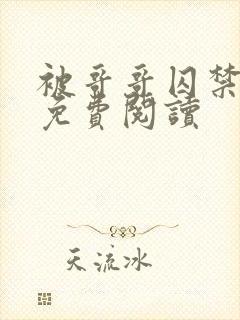 被哥哥囚禁
免費閱讀
天流冰